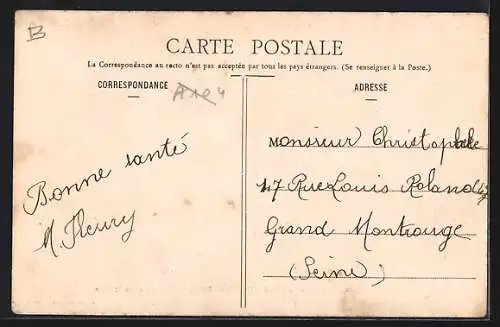 B
CARTE POSTALE
La Correspondance au recto n'est pas acceptée par tous les pays étrangers. (Se renseigner à la Poste.)
CORRESPONDANCE
ADRESSE
Bonne santé
M. Fleury
Monsieur Christophle
47 Rue Louis Roland 47
Grand Montrouge
(Seine)